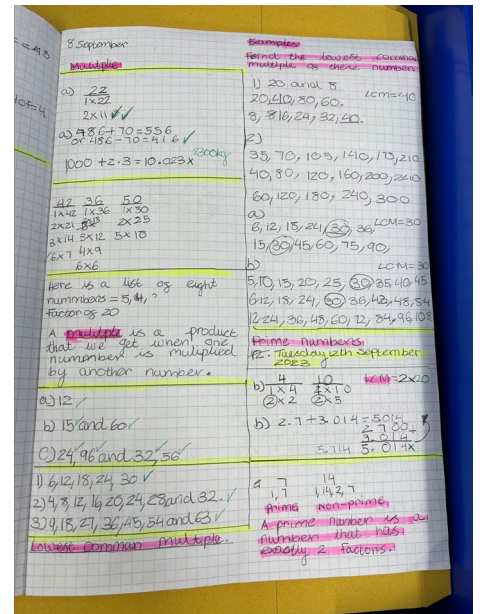 = =48
HCF=4
8 September
Multiples
a) 22
1x22
2x11 ✓✓
a) 486+70=556 ✓
or 486-70=416 ✓
2300kg
1000 +2.3=10.023x
42 36 50
1x42 1x36 1x50
2x21 2x25
3x14 3x12 5x10
6x7 4x9
6x6
Here is a list of eight
nummbers = 5, 4, ?
Factor of 20
A multiple is a product
that we get when one
numnber is multiplied
by another number.
a) 12 ✓
b) 15 and 60 ✓
C) 24, 96 and 32, 56 ✓
1) 6,12,18,24, 30 ✓
2) 4,8,12,16,20,24,28 and 32. ✓
3) 9,18,27,36,45,54 and 63 ✓
Lowest comman multiple.
Examples
Feind the lowest comman
multiple of these number
1) 20 and 8
20,40,60. LCM=40
8, 16, 24, 32, 40.
2)
35, 70, 105, 140, 175, 210
40, 80, 120, 160, 200, 240
60, 120, 180, 240, 300
a)
6, 12, 18, 24, 30, 36, LCM=30
15, 30, 45, 60, 75, 90,
b) LCM=30
5,10,15, 20, 25, 30, 35, 40, 45
6,12, 18, 24, 30, 36, 42, 48, 54
12, 24, 36, 48, 60, 72, 84, 96, 108
Prime numbers.
Tuesday 12th September
2023
b) 4 10 LCM=2x20
1x4 1x10
2x2 2x5
b) 2.7+3.014=5.014
2.700+
3.014
5.714 5.014x
7 14
1,7 1,14,2,7
Prime Non-prime
A prime number is a
number that has
exactly 2 factors.